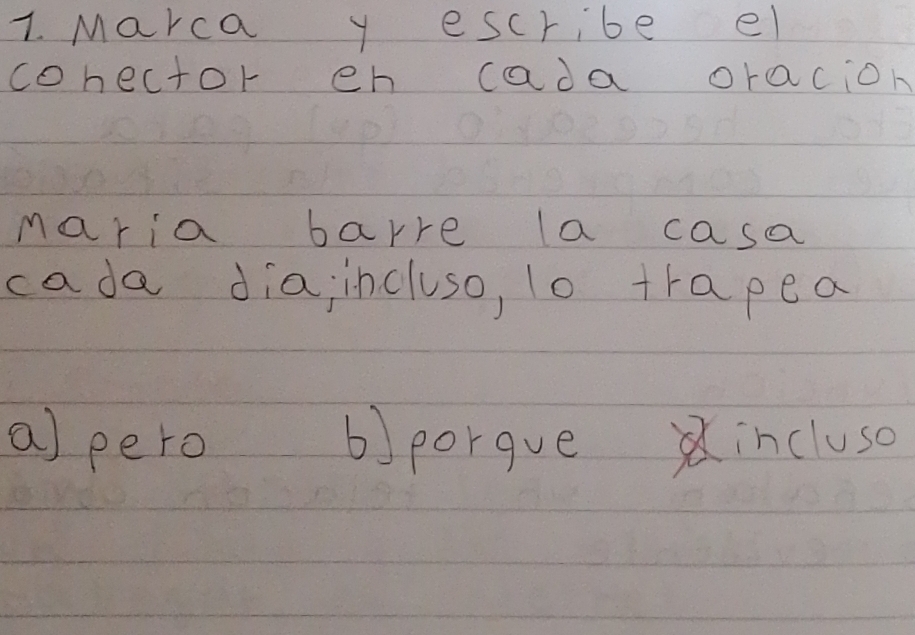 1. Marca y escribe el
conector en cada oracion
Maria barre la casa
cada dia; incluso, lo trapea
a) pero b) porque c) incluso